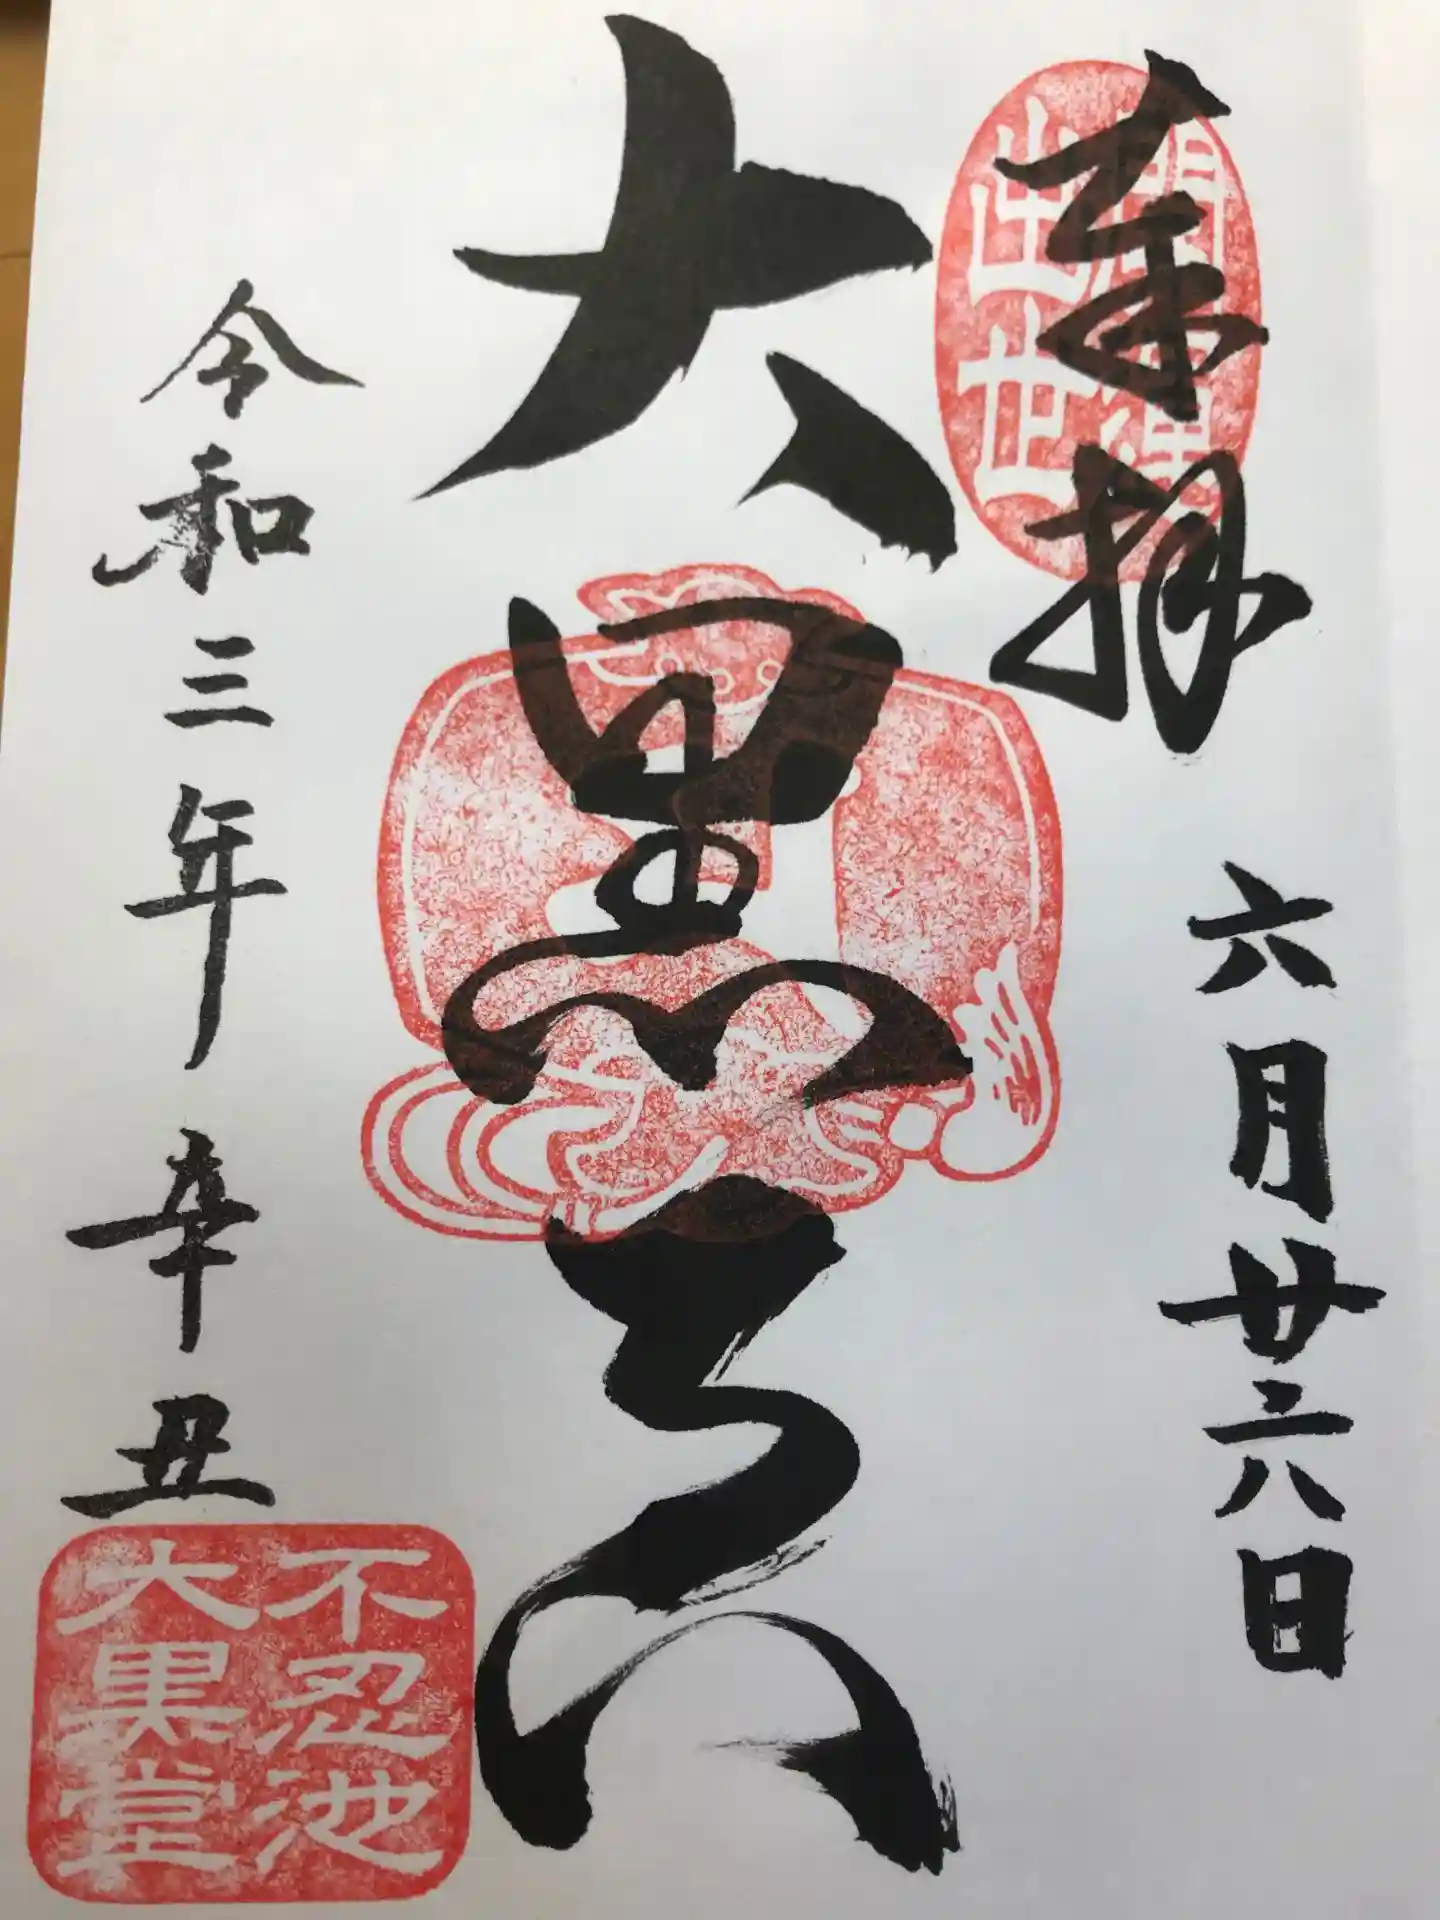 奉拝
六月廿六日
大黒天
令和三年辛丑
出世
不忍池
大黒堂